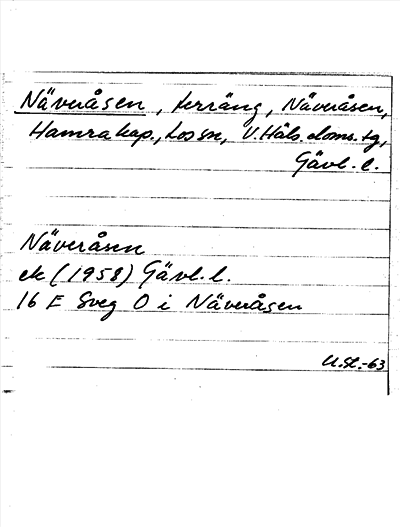 Näveråsen, terräng, Näveråsen,
Hamra kap., Los sn, V. Häls. doms.tg,
Gävl. l.
Näveråsen
ek (1958) Gävl. l.
16 F Sveg O i Näveråsen
U.St.-63